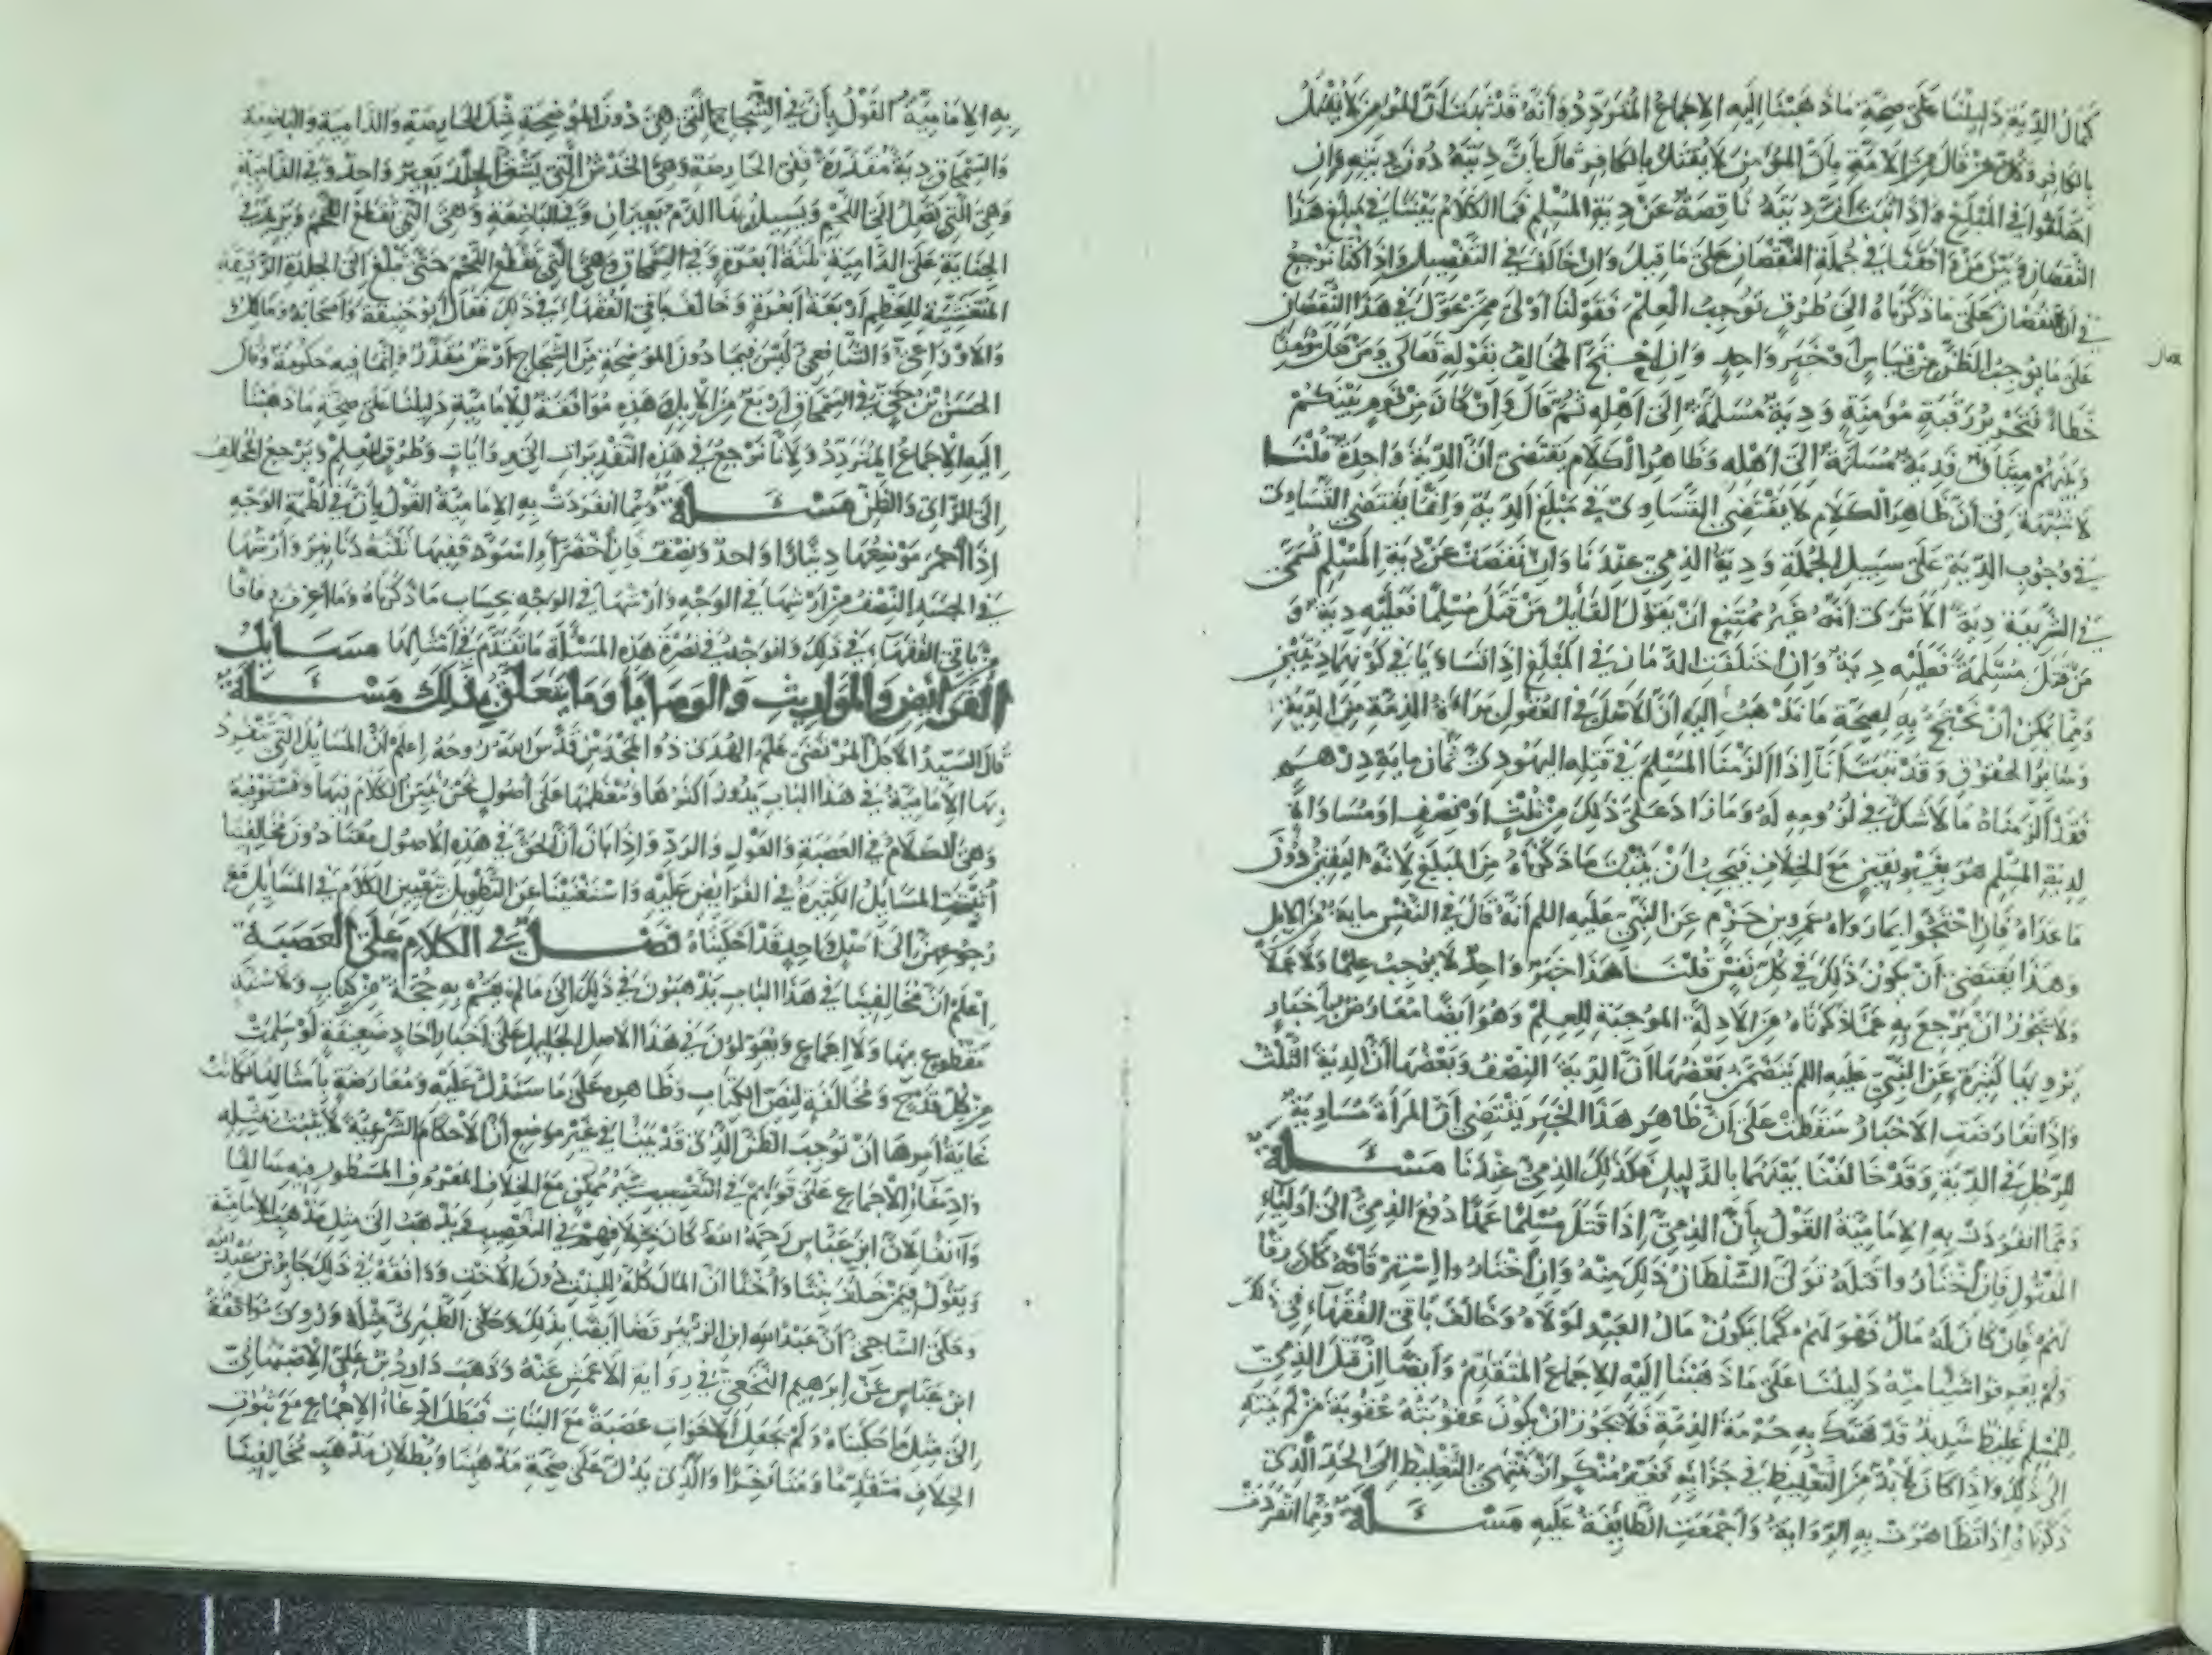 كمال الدية دليلنا على صحة ما ذهبنا إليه الإجماع المتردد وأنه قد ثبت أن المؤمن لا يقتل
بالكافر وكل من قال من الأمة بأن المؤمن لا يقتل بالكافر قال بأن ديته دون ديته وإن
اختلفوا في المبلغ وإذا ثبت أن ديته ناقصة عن دية المسلم فما الكلام بيننا في مبلغ هذا
النقصان وبين من وافقنا في جملة النقصان على ما قيل وإن خالف في التفصيل وإذا كنا نرجع
في أن النقصان على ما ذكرناه إلى طرق توجب العلم فقولنا أولى ممن عول في هذا النقصان
على ما يوجب الظن من قياس أو خبر واحد وإن احتج المخالف بقوله تعالى ومن قتل مؤمنا
خطأ فتحرير رقبة مؤمنة ودية مسلمة إلى أهله ثم قال وإن كان من قوم بينكم
وبينهم ميثاق فدية مسلمة إلى أهله وظاهر الكلام يقتضي أن الدية واحدة قلنا
لا شبهة في أن ظاهر الكلام لا يقتضي التساوي في مبلغ الدية وإنما يقتضي التساوي
في وجوب الدية على سبيل الجملة ودية الذمي عندنا وإن نقصت عن دية المسلم تسمى
في الشريعة دية ألا ترى أنه غير ممتنع أن يقول القائل من قتل مسلما فعليه دية و
من قتل مسلمة فعليه دية وإن اختلفت الديتان في المبلغ إذا تساويا في كونهما ديتين
ومما يمكن أن يحتج به لصحة ما نذهب إليه أن الأصل في العقول براءة الذمة من الدية
وسائر الحقوق وقد ثبت أنا إذا ألزمنا المسلم في قتله اليهودي ثمان ماية درهم
فقد ألزمناه ما لا شك في لزومه له وما زاد على ذلك من ثلث أو نصف أو مساواة
لدية المسلم هو بغير يقين مع الخلاف فيجب أن يثبت ما ذكرناه من المبلغ لأنه اليقين دون
ما عداه فإن احتجوا بما رواه عمرو بن حزم عن النبي عليه السلم أنه قال في النفس ماية من الإبل
وهذا يقتضي أن يكون ذلك في كل نفس قلنا هذا خبر واحد لا يوجب علما ولا عملا
ولا يجوز أن يرجع به عما ذكرناه من الأدلة الموجبة للعلم وهو أيضا معارض بأخبار
يروونها كثيرة عن النبي عليه السلم يتضمن بعضها أن الدية النصف وبعضها أن الدية الثلث
وإذا تعارضت الأخبار سقطت على أن ظاهر هذا الخبر يقتضي أن المرأة مساوية
للرجل في الدية وقد خالفنا بينهما بالدليل فكذلك الذمي عندنا مسئلة
ومما انفردت به الإمامية القول بأن الذمي إذا قتل مسلما عمدا دفع الذمي إلى أولياء
المقتول فإن اختاروا قتله تولى السلطان ذلك منه وإن اختاروا استرقاقه كان رقا
لهم فإن كان له مال فهو لهم كما يكون مال العبد لمولاه وخالف باقي الفقهاء في ذلك
ولم يعرفوا شيئا منه دليلنا على ما ذهبنا إليه الإجماع المتقدم وأيضا إن قتل الذمي
للمسلم غليظ شديد قد هتك به حرمة الذمة فلا يجوز أن يكون عقوبته عقوبة من لم ينته
إلى ذلك وإذا كان لا بد من التغليظ في جزائه فغير منكر أن ينتهي التغليظ إلى الحد الذي
ذكرناه إذا تظاهرت به الرواية وأجمعت الطائفة عليه مسئلة ومما انفردت
به الإمامية القول بأن في الشجاج التي هي دون الموضحة مثل الحارصة والدامية والباضعة
والسمحاق دية مقدرة ففي الحارصة وهي الخدش التي يشق الجلد بعير واحد وفي الدامية
وهي التي تصل إلى اللحم ويسيل منها الدم بعيران وفي الباضعة وهي التي تقطع اللحم وتزيد في
الجناية على الدامية ثلثة أبعرة وفي السمحاق وهي التي تقطع اللحم حتى تبلغ إلى الجلدة الرقيقة
المتغشية للعظم أربعة أبعرة وخالف باقي الفقهاء في ذلك فقال أبو حنيفة وأصحابه ومالك
والأوزاعي والشافعي ليس فيما دون الموضحة من الشجاج أرش مقدر وإنما فيه حكومة وقال
الحسن بن حي في السمحاق أربع من الإبل وهذه موافقة للإمامية دليلنا على صحة ما ذهبنا
إليه الإجماع المتردد ولأنا نرجع في هذه التقديرات إلى روايات وطرق العلم ويرجع المخالف
إلى الرأي والظن مسئلة ومما انفردت به الإمامية القول بأن في لطمة الوجه
إذا احمر موضعها دينارا واحدا ونصف فإن اخضر أو اسود ففيها ثلثة دنانير وأرشها
في الجسد النصف من أرشها في الوجه وأرشها في الوجه بحساب ما ذكرناه وما أعرف وفاقا
من باقي الفقهاء في ذلك والوجه في نصرة هذه المسئلة ما تقدم في أمثالها مسائل
الفرائض والمواريث والوصايا وما يتعلق بذلك مسئلة
قال السيد الأجل المرتضى علم الهدى ذو المجدين قدس الله روحه اعلم أن المسايل التي تنفرد
بها الإمامية في هذا الباب يدور أكثرها ومعظمها على أصول نحن نبين الكلام فيها ونستوفيه
وهي الكلام في العصبة والعول والرد وإذا بان أن الحق في هذه الأصول معنا دون مخالفينا
ابتنت المسايل الكثيرة في الفرايض عليه واستغنينا عن التطويل بتعيين الكلام في المسايل مع
رجوعهن إلى أصل واحد قد أحكمناه فصل في الكلام على العصبة
اعلم أن مخالفينا في هذا الباب يذهبون في ذلك إلى ما لم يقم به حجة من كتاب ولا سنة
مقطوع بها ولا إجماع ويعولون في هذا الأصل الجليل على أخبار آحاد ضعيفة لو سلمت
من كل قدح ومخالفة لنص الكتاب وظاهره على ما سندل عليه ومعارضة بأمثالها لكانت
غاية أمرها أن توجب الظن الذي قد بينا في غير موضع أن الأحكام الشرعية لا تثبت بمثله
وادعاء الإجماع على قولهم في التعصيب غير ممكن مع الخلاف المعروف المسطور فيه سالفا
وآنفا لأن ابن عباس رحمة الله كان يخالفهم في التعصيب ويذهب إلى مثل مذهب الإمامية
ويقول فيمن خلف بنتا وأختا أن المال كله للبنت دون الأخت ووافقه في ذلك جابر بن عبد الله
وحكى الساجي أن عبد الله ابن الزبير قضا أيضا بذلك وحكى الطبري مثله وروى موافقة
ابن عباس عن إبرهيم النخعي في رواية الأعمش عنه وذهب داود بن علي الأصبهاني
إلى مثل ما حكيناه ولم يجعل الأخوات عصبة مع البنات فبطل ادعاء الإجماع مع ثبوت
الخلاف متقدما ومتأخرا والذي يدل على صحة مذهبنا وبطلان مذهب مخالفينا